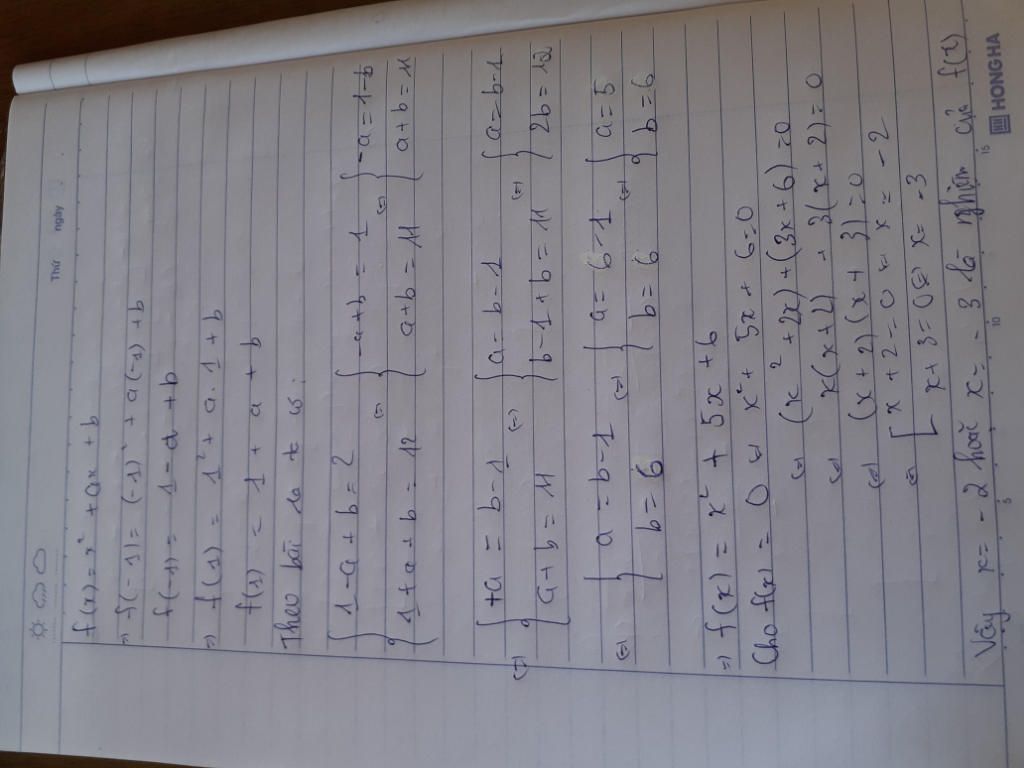 Thứ ngày
f(x) = x² + ax + b
⇒ f(-1) = (-1)² + a(-1) + b
f(-1) = 1 - a + b
⇒ f(1) = 1² + a.1 + b
f(1) = 1 + a + b
Theo bài ra ta có:
{ 1 - a + b = 2 (=) { -a + b = 1 (=) { -a = 1 - b
{ 1 + a + b = 12 { a + b = 11 { a + b = 11
(=) { +a = b - 1 (=) { a = b - 1 (=) { a = b - 1
{ a + b = 11 { b - 1 + b = 11 { 2b = 12
(=) { a = b - 1 (=) { a = 6 - 1 (=) { a = 5
{ b = 6 { b = 6 { b = 6
⇒ f(x) = x² + 5x + 6
Cho f(x) = 0 (=) x² + 5x + 6 = 0
(=) (x² + 2x) + (3x + 6) = 0
(=) x(x + 2) + 3(x + 2) = 0
(=) (x + 2)(x + 3) = 0
(=) [ x + 2 = 0 (=) x = -2
[ x + 3 = 0 (=) x = -3
Vậy x = -2 hoặc x = -3 là nghiệm của f(x)
5 10 15
HONGHA